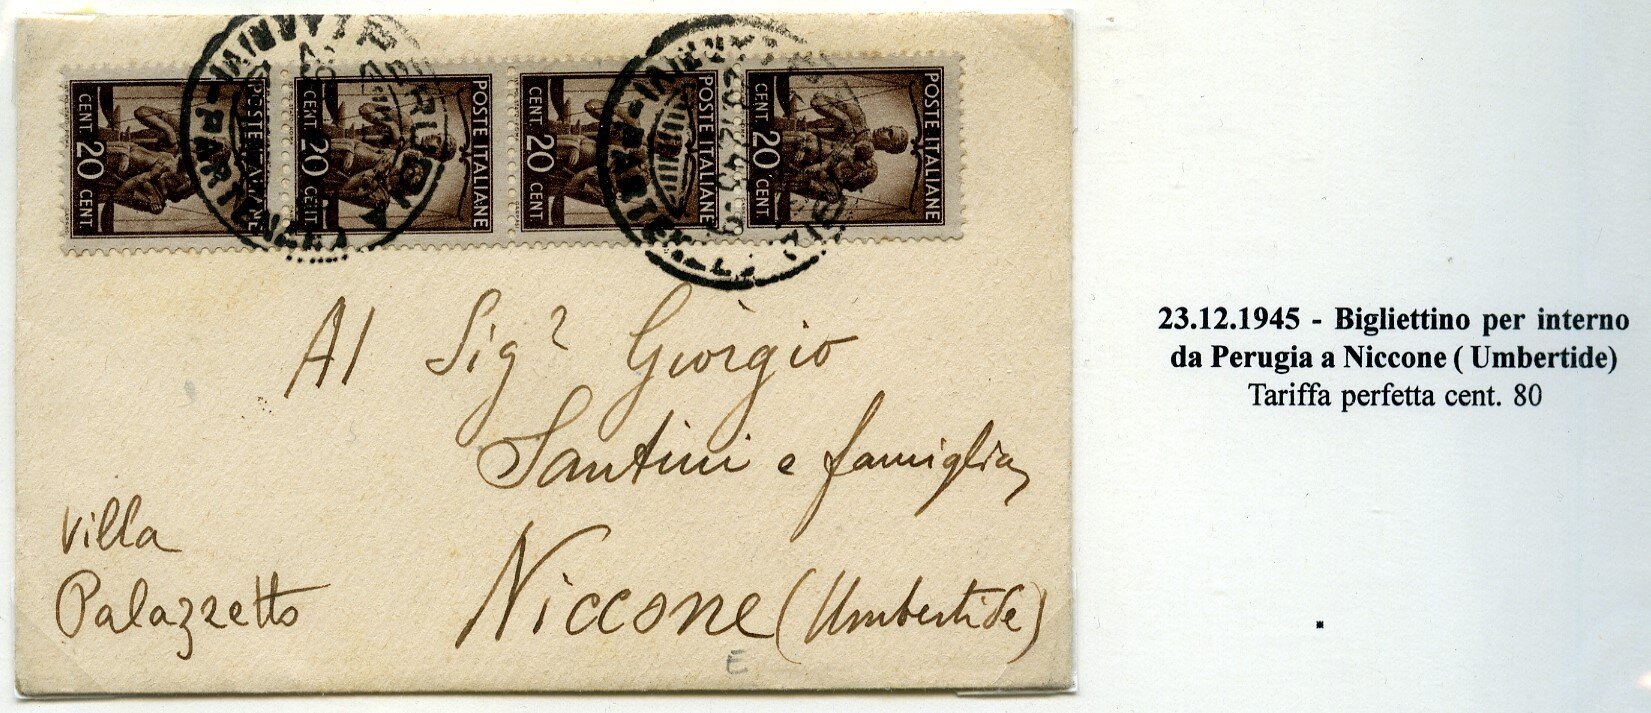 CENT. 20 CENT.
POSTE ITALIANE
CENT. 20 CENT.
POSTE ITALIANE
CENT. 20 CENT.
POSTE ITALIANE
CENT. 20 CENT.
POSTE ITALIANE
PERUGIA
PARTENZA
Al Sigr Giorgio
Santini e famiglia
Villa
Palazzetto
Niccone (Umbertide)
E
23.12.1945 - Bigliettino per interno
da Perugia a Niccone ( Umbertide)
Tariffa perfetta cent. 80